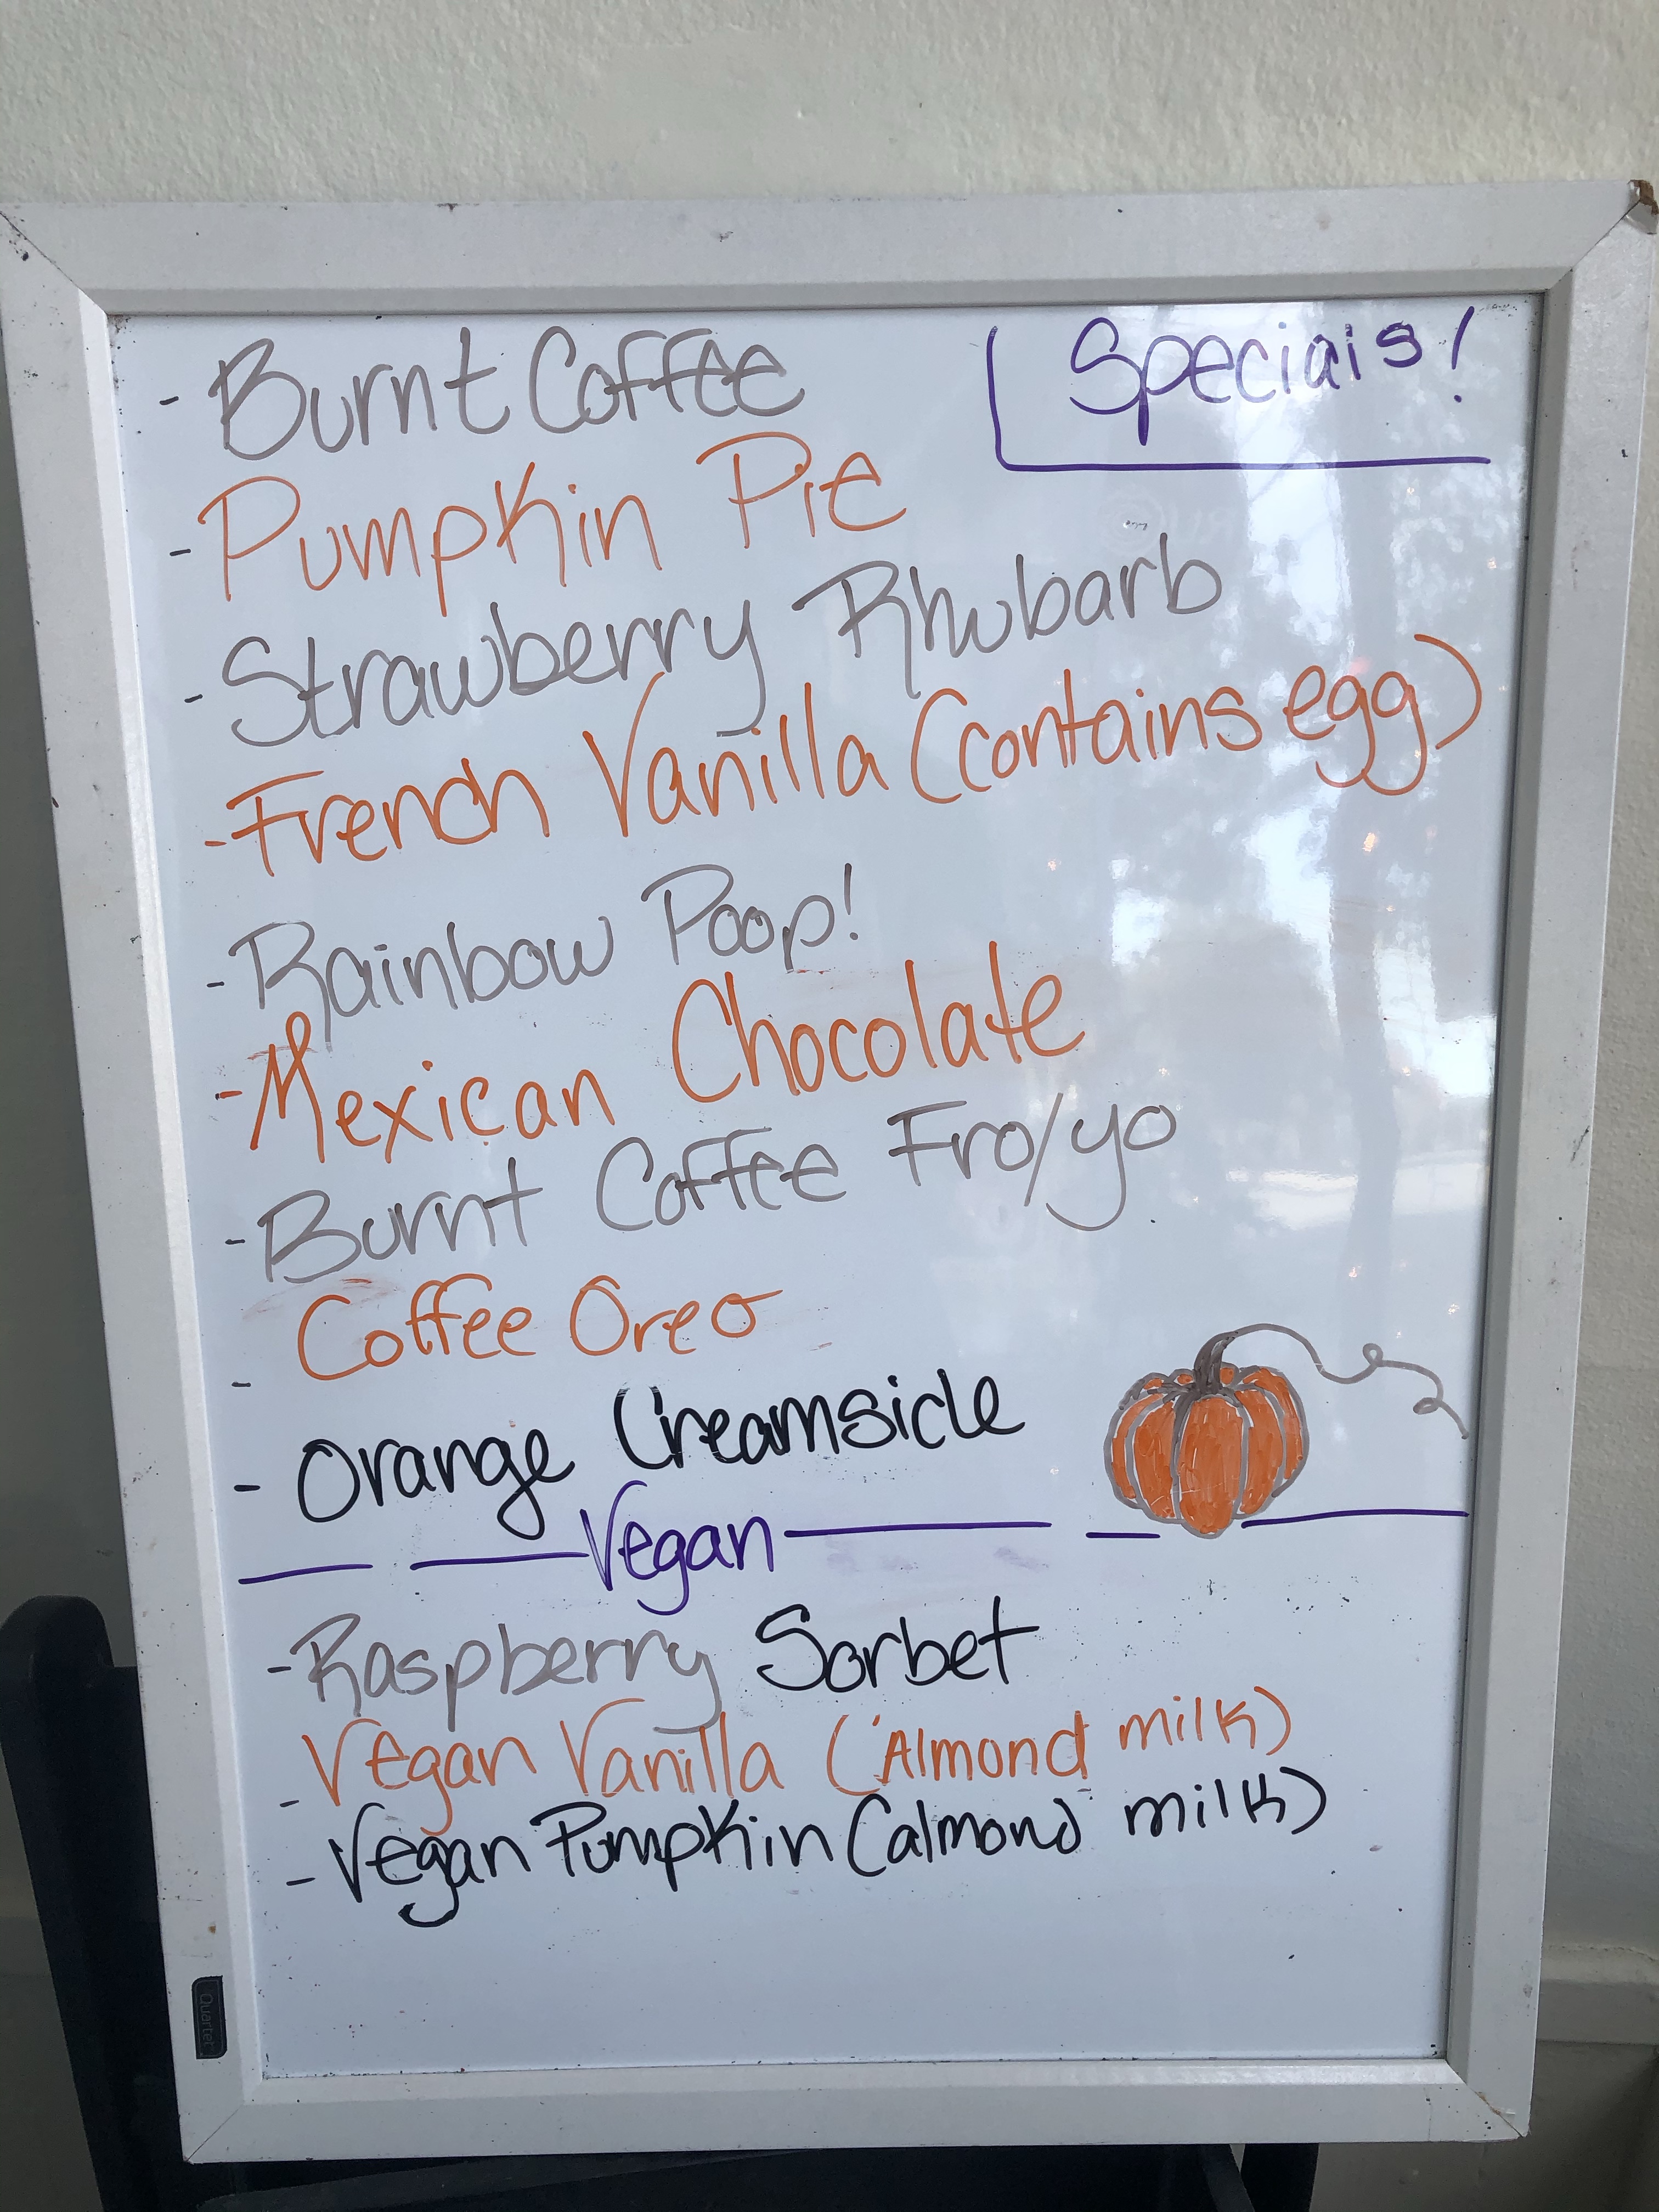 Specials!
- Burnt Coffee
- Pumpkin Pie
- Strawberry Rhubarb
- French Vanilla (contains egg)
- Rainbow Poop!
- Mexican Chocolate
- Burnt Coffee Fro/yo
- Coffee Oreo
- Orange Creamsicle
Vegan
- Raspberry Sorbet
- Vegan Vanilla (Almond milk)
- Vegan Pumpkin (almond milk)
Quartet